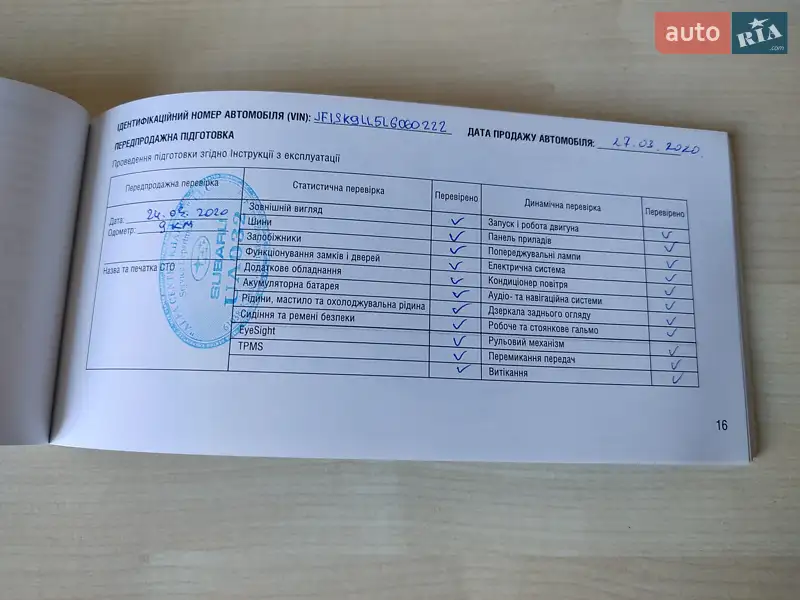 auto RIA.com
ІДЕНТИФІКАЦІЙНИЙ НОМЕР АВТОМОБІЛЯ (VIN): JF1SK9LL5LG060222 ДАТА ПРОДАЖУ АВТОМОБІЛЯ: 27.03.2020
ПЕРЕДПРОДАЖНА ПІДГОТОВКА
Проведення підготовки згідно Інструкції з експлуатації
Передпродажна перевірка Статистична перевірка Перевірено Динамічна перевірка Перевірено
Дата: 2020
Одометр: 9 КМ
Назва та печатка СТО
SUBARU
UA032
Зовнішній вигляд
Шини
Запобіжники
Функціонування замків і дверей
Додаткове обладнання
Акумуляторна батарея
Рідини, мастило та охолоджувальна рідина
Сидіння та ремені безпеки
EyeSight
TPMS
Запуск і робота двигуна
Панель приладів
Попереджувальні лампи
Електрична система
Кондиціонер повітря
Аудіо- та навігаційна системи
Дзеркала заднього огляду
Робоче та стоянкове гальмо
Рульовий механізм
Перемикання передач
Витікання
16